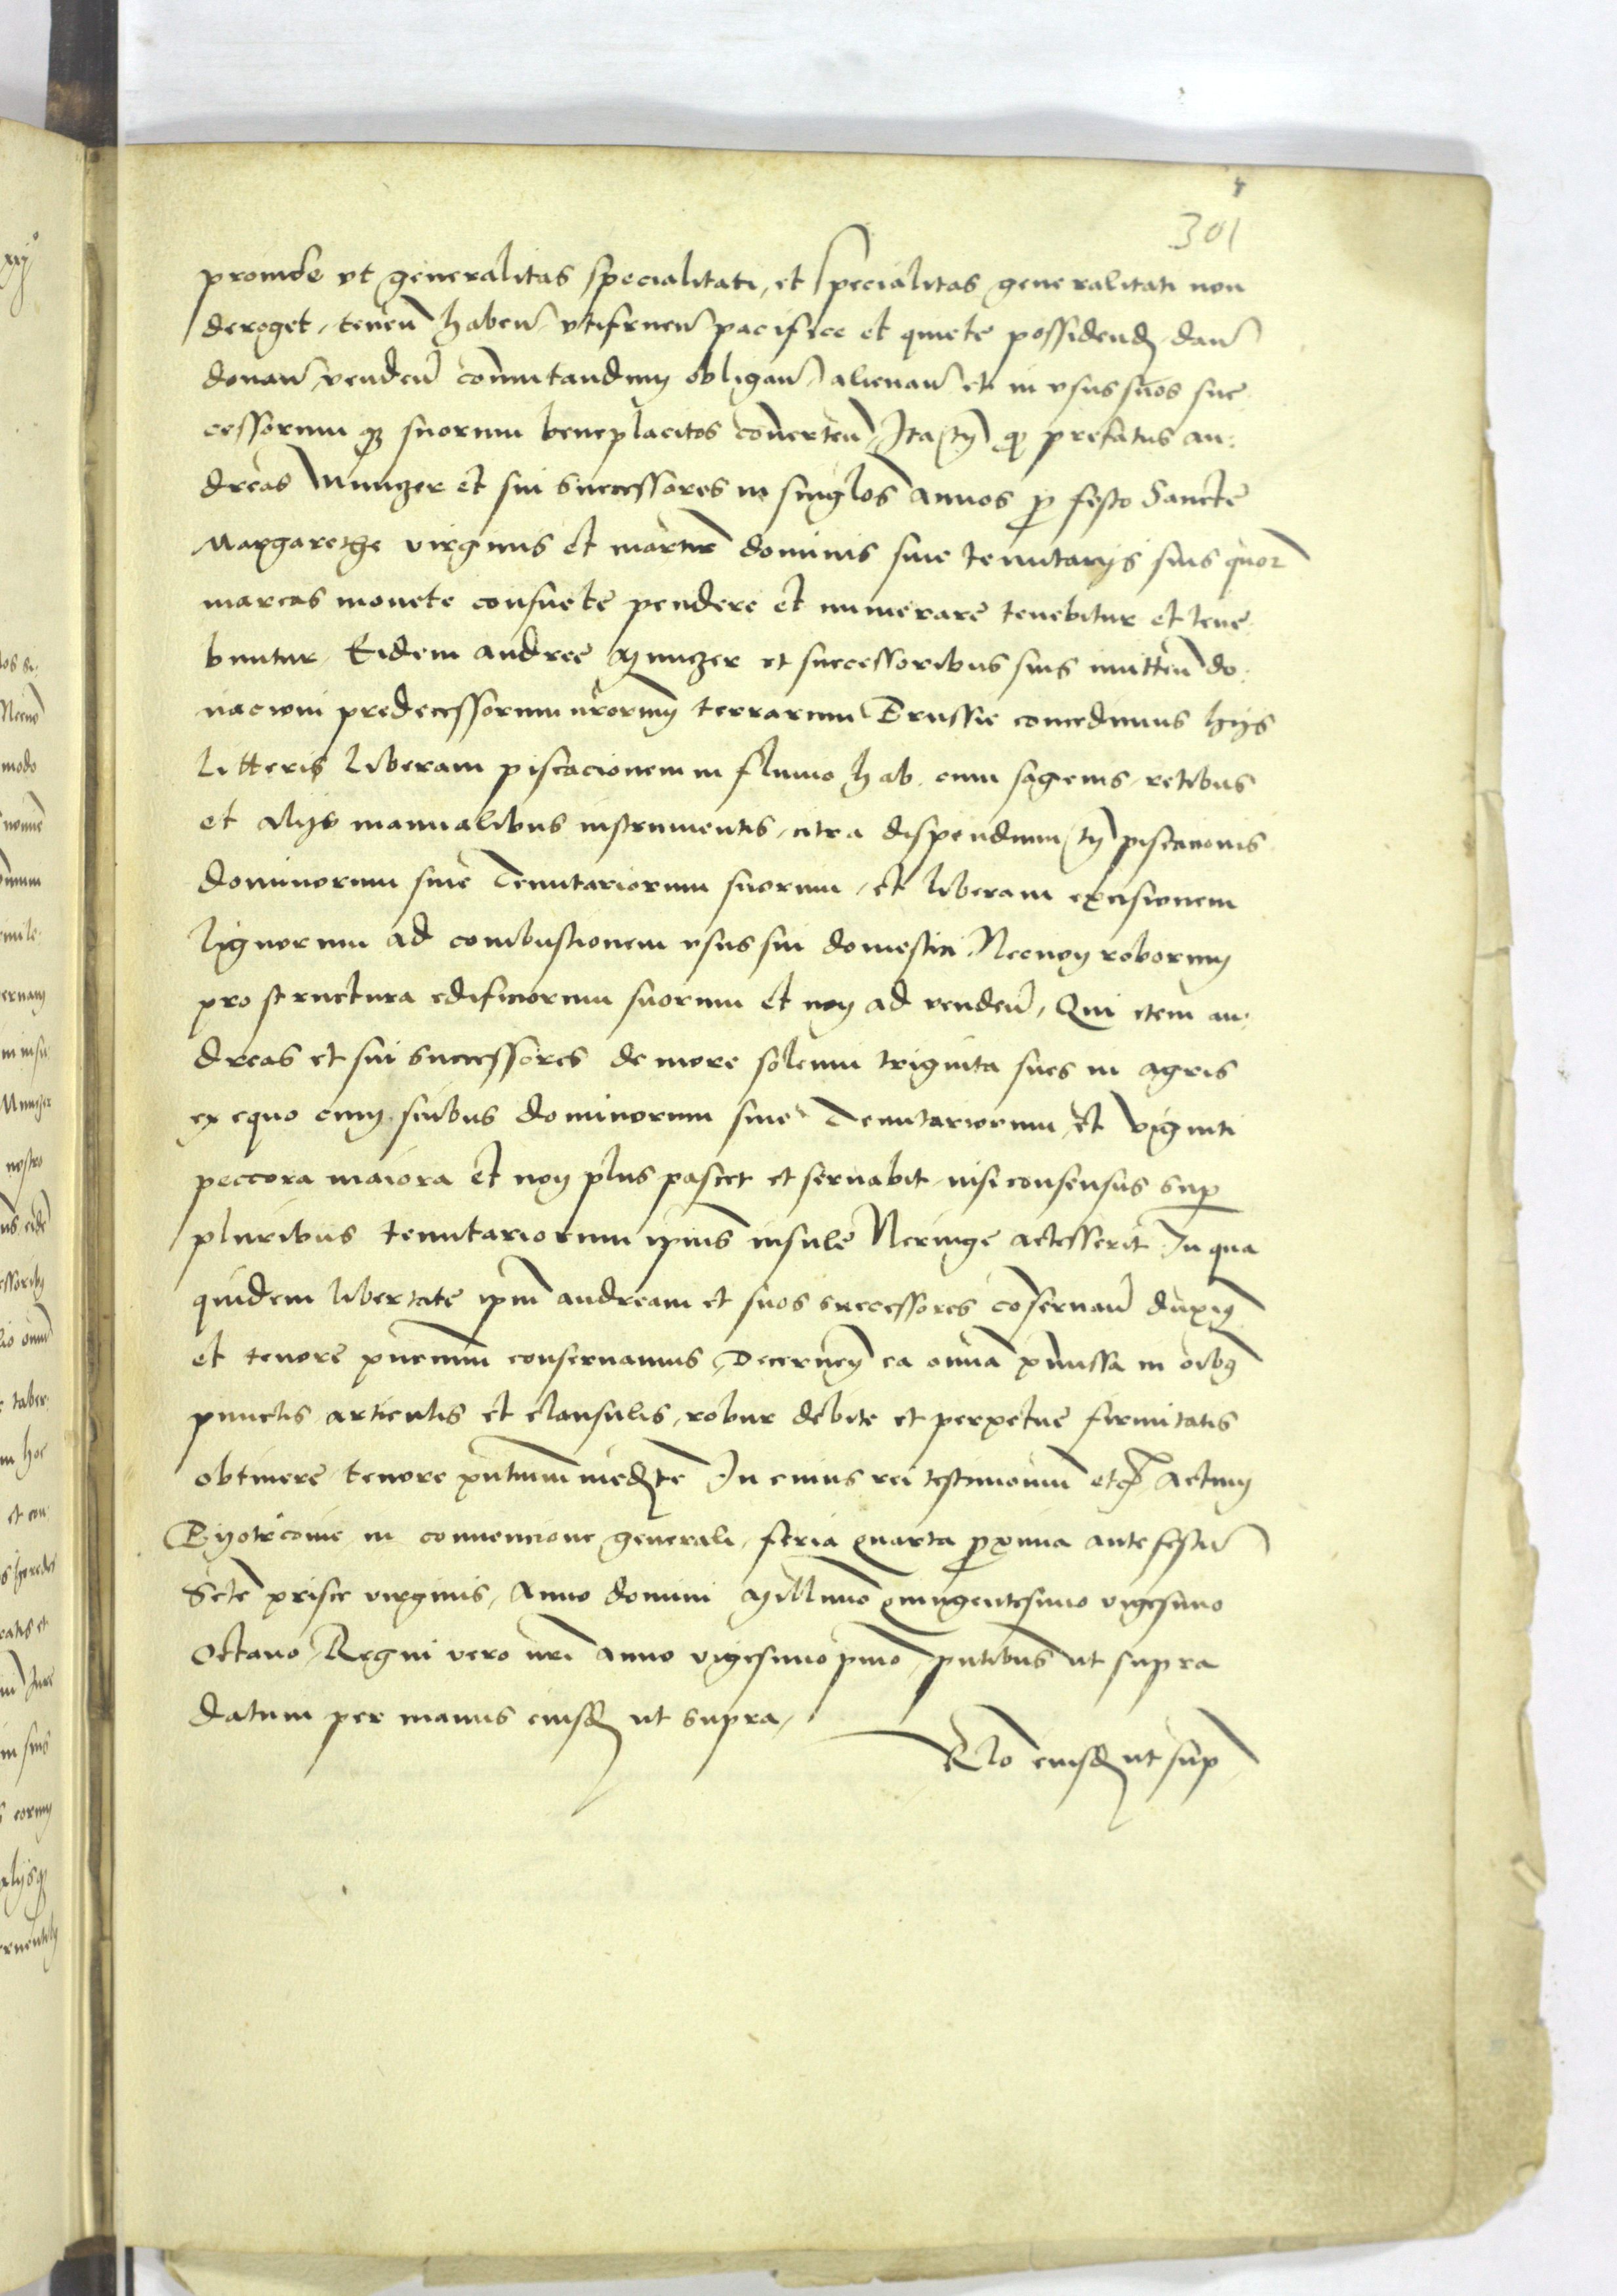 301
proinde vt generalitas specialitati, et specialitas generalitati non
deroget, teneñ habeñ vtifrueñ pacifice et quiete possidend, dañ
donañ, vendeñ com̃utandum obligañ, alienañ et in vsus suos suc
cessorum qȝ suorum beneplacitos cõuerteñ, Ita tñ qꝫ prefatus an:
dreas Munczer et sui successores in singłos annos ꝓ festo Sancte
Margarethe virginis et martiř dominis siue tenutarijs suis quor
marcas monete consuete pendere et numerare tenebitur et tene
buntur, Eidem andree Munczer et successoribus suis inniteñ do:
nacioni predecessorum nr̃orum terrarum Prussie concedimus hijs
litteris liberam piscacionem in fluuio hab, cum sagenis, retibus
et alijs manualibus instrumentis, citra dispendium tñ piscacionis
dominorum siue Tenutariorum suorum, et liberam excisionem
lignorum ad combustionem vsus sui domestici, Necnon roborum
pro structura edificiorum suorum et non ad vendeñ, Qui item an:
dreas et sui successores de more solenni triginta sues in agris
ex equo cum suibus dominorum siue Tenutariorum, et viginti
peccora maiora et non plus pascet et seruabit, nisi consensus suꝑ
pluribus tenutariorum ipius insule Neringe accesserit, In qua
quidem libertate ipm̃ andream et suos successores cõseruañ duxim
et tenore pñcium conseruamus, Decerneñ ea om̃ia p̃missa in oĩbꝫ
punctis articulis et clausulis, robur debite et perpetue firmitatis
obtinere, tenore pñtium med̃te In cuius rei testimonium etcꝫ Actum
Pyotr̃couie in conuencione generali, feria quarta ꝓxima ante festũ
Scte prisce virginis, Anno domini Millim̃o quingentesimo vigesimo
Octauo, Regni vero nr̃i anno vigesimo pmo, pñtibus ut supra
Datum per manus eiusd ut supra,
Rło eiusd ut supr̃